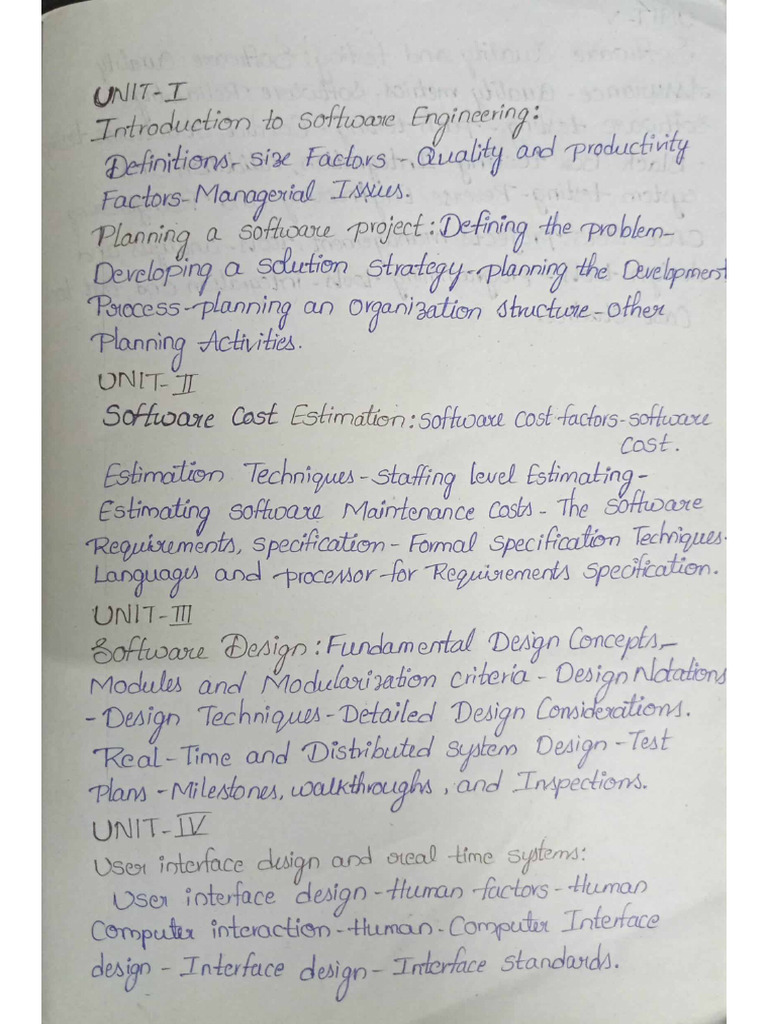 UNIT-I
Introduction to Software Engineering:
Definitions-size Factors-Quality and productivity
Factors-Managerial Issues.
Planning a software project: Defining the problem-
Developing a solution Strategy-planning the Development
Process-planning an organization structure-other
Planning Activities.
UNIT-II
Software Cost Estimation: Software cost factors-software
cost.
Estimation Techniques-staffing level Estimating-
Estimating software Maintenance costs-The software
Requirements, specification-Formal specification Techniques.
Languages and processor-for Requirements specification.
UNIT-III
Software Design: Fundamental Design Concepts,-
Modules and Modularization criteria-Design Notations
-Design Techniques-Detailed Design Considerations.
Real-Time and Distributed system Design-Test
Plans-Milestones, walkthroughs, and Inspections.
UNIT-IV
User interface design and real time systems:
User interface design-Human factors-Human
Computer interaction-Human-Computer Interface
design-Interface design-Interface standards.